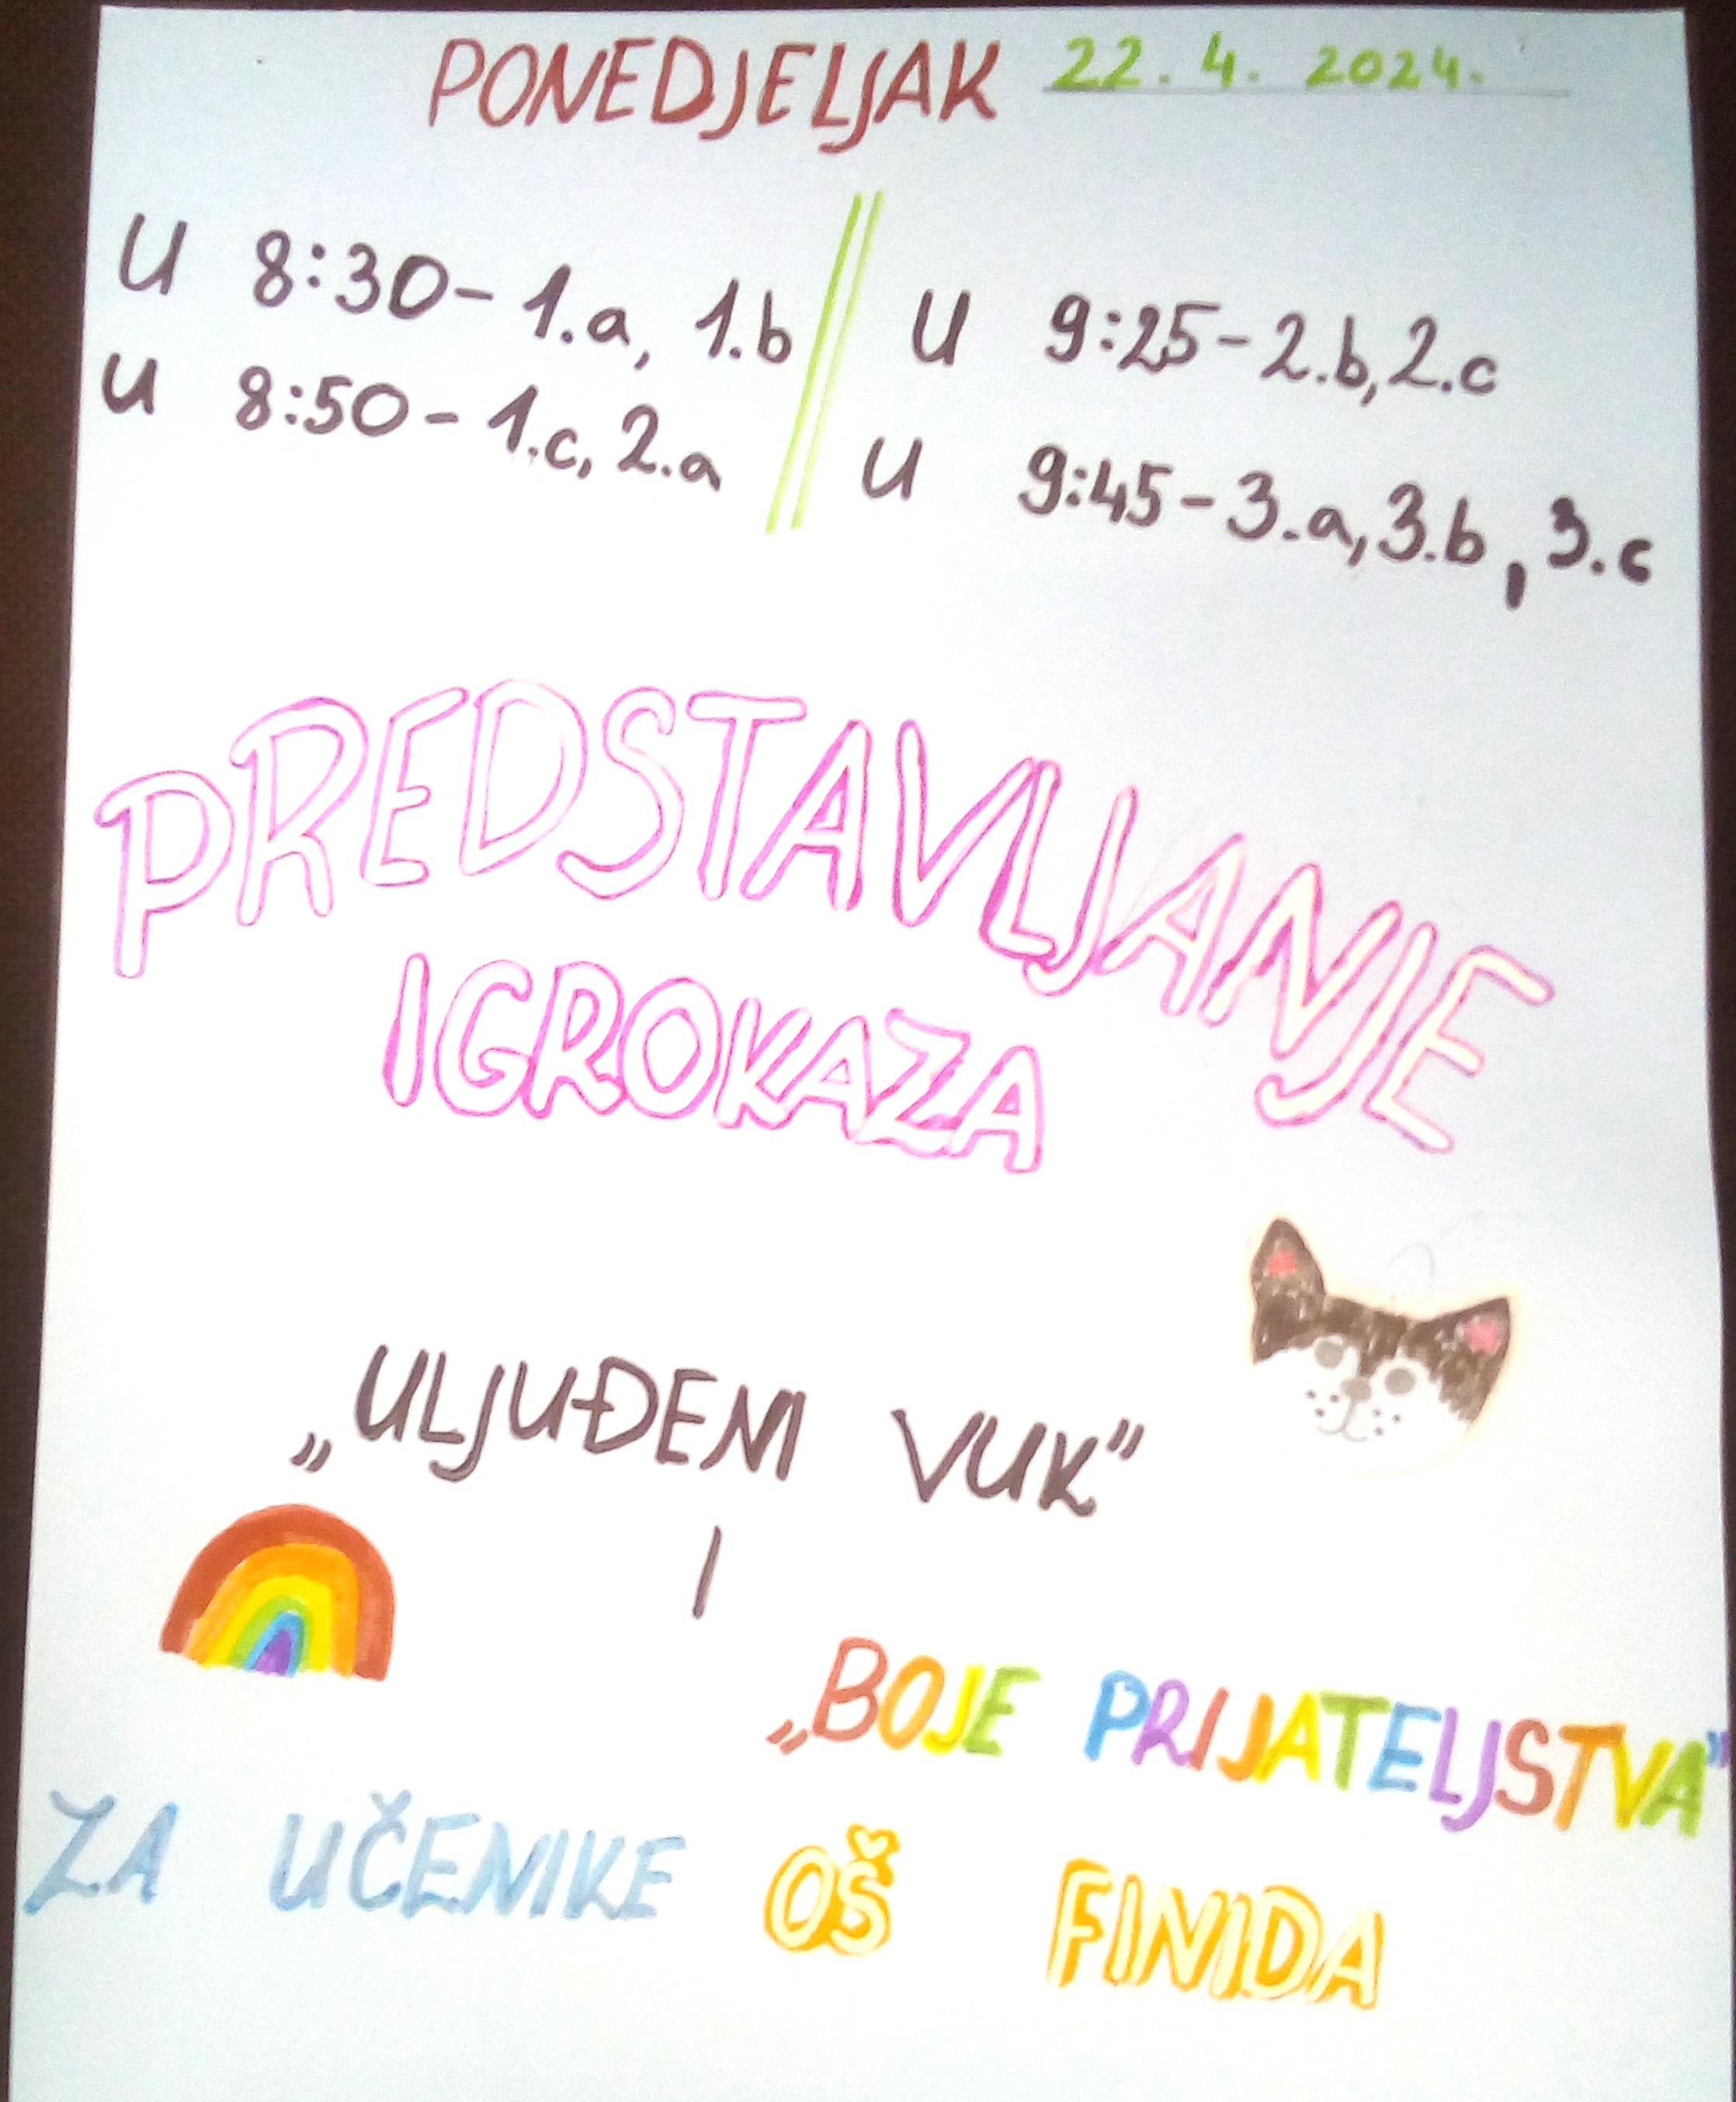 PONEDJELJAK 22. 4. 2024.
U 8:30 - 1.a, 1.b
U 8:50 - 1.c, 2.a
U 9:25 - 2.b, 2.c
U 9:45 - 3.a, 3.b, 3.c
PREDSTAVLJANJE
IGROKAZA
„ULJUĐENI VUK”
I
„BOJE PRIJATELJSTVA”
ZA UČENIKE OŠ FINIDA